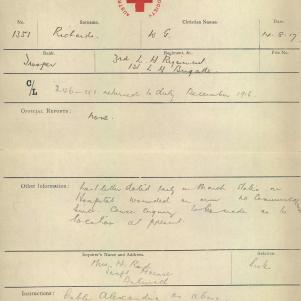 AUST
SOCIETY
No.
Surname.
Christian Names.
Date
1351
Richards
W G.
14.8.17
Rank.
Regiment, &c.
File No.
Trooper
3rd L H Regiment
1st L H Brigade.
C/L
returned to duty December 1916.
OFFICIAL REPORTS:
None.
Other Information:
Last letter dated early in March states in
Hospital wounded in arm no
since. Cause enquiry to be made as to
location at present.
Inquirer's Name and Address.
Relation
Mrs. H.
House
Instructions:
Cable Alexandria as above